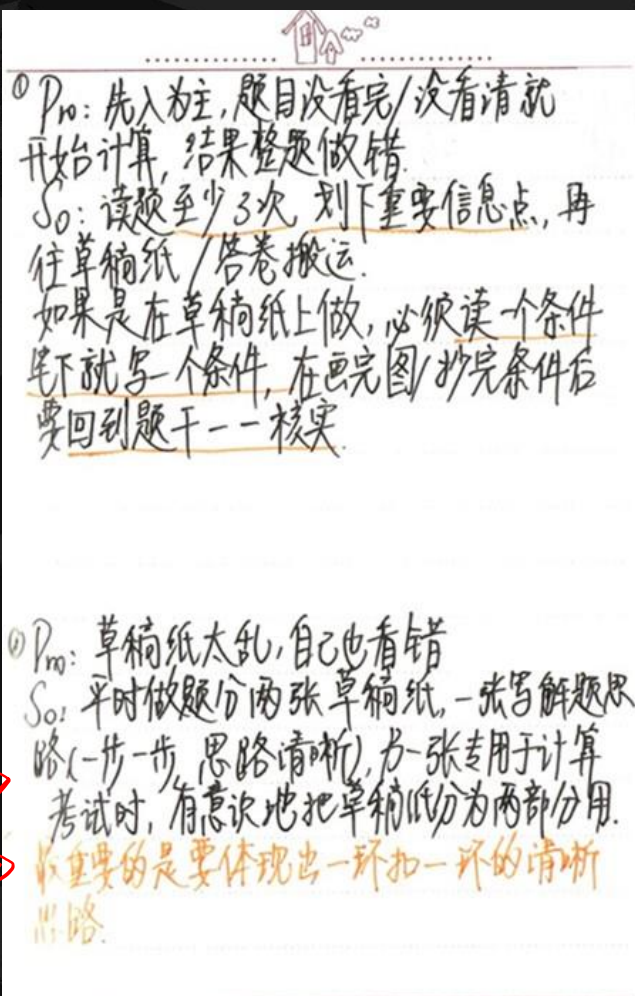 ① Pro: 先入为主，题目没看完/没看清就
开始计算，结果整题做错.
So: 读题至少3次，划下重要信息点，再
往草稿纸/答卷搬运.
如果是在草稿纸上做，必须读一个条件
笔下就写一个条件，在画完图/抄完条件后
要回到题干一一核实.
② Pro: 草稿纸太乱，自己也看错
So: 平时做题分两张草稿纸，一张写解题思
路(一步一步，思路清晰)，另一张专用于计算
考试时，有意识地把草稿纸分为两部分用.
最重要的是要体现出一环扣一环的清晰
思路.